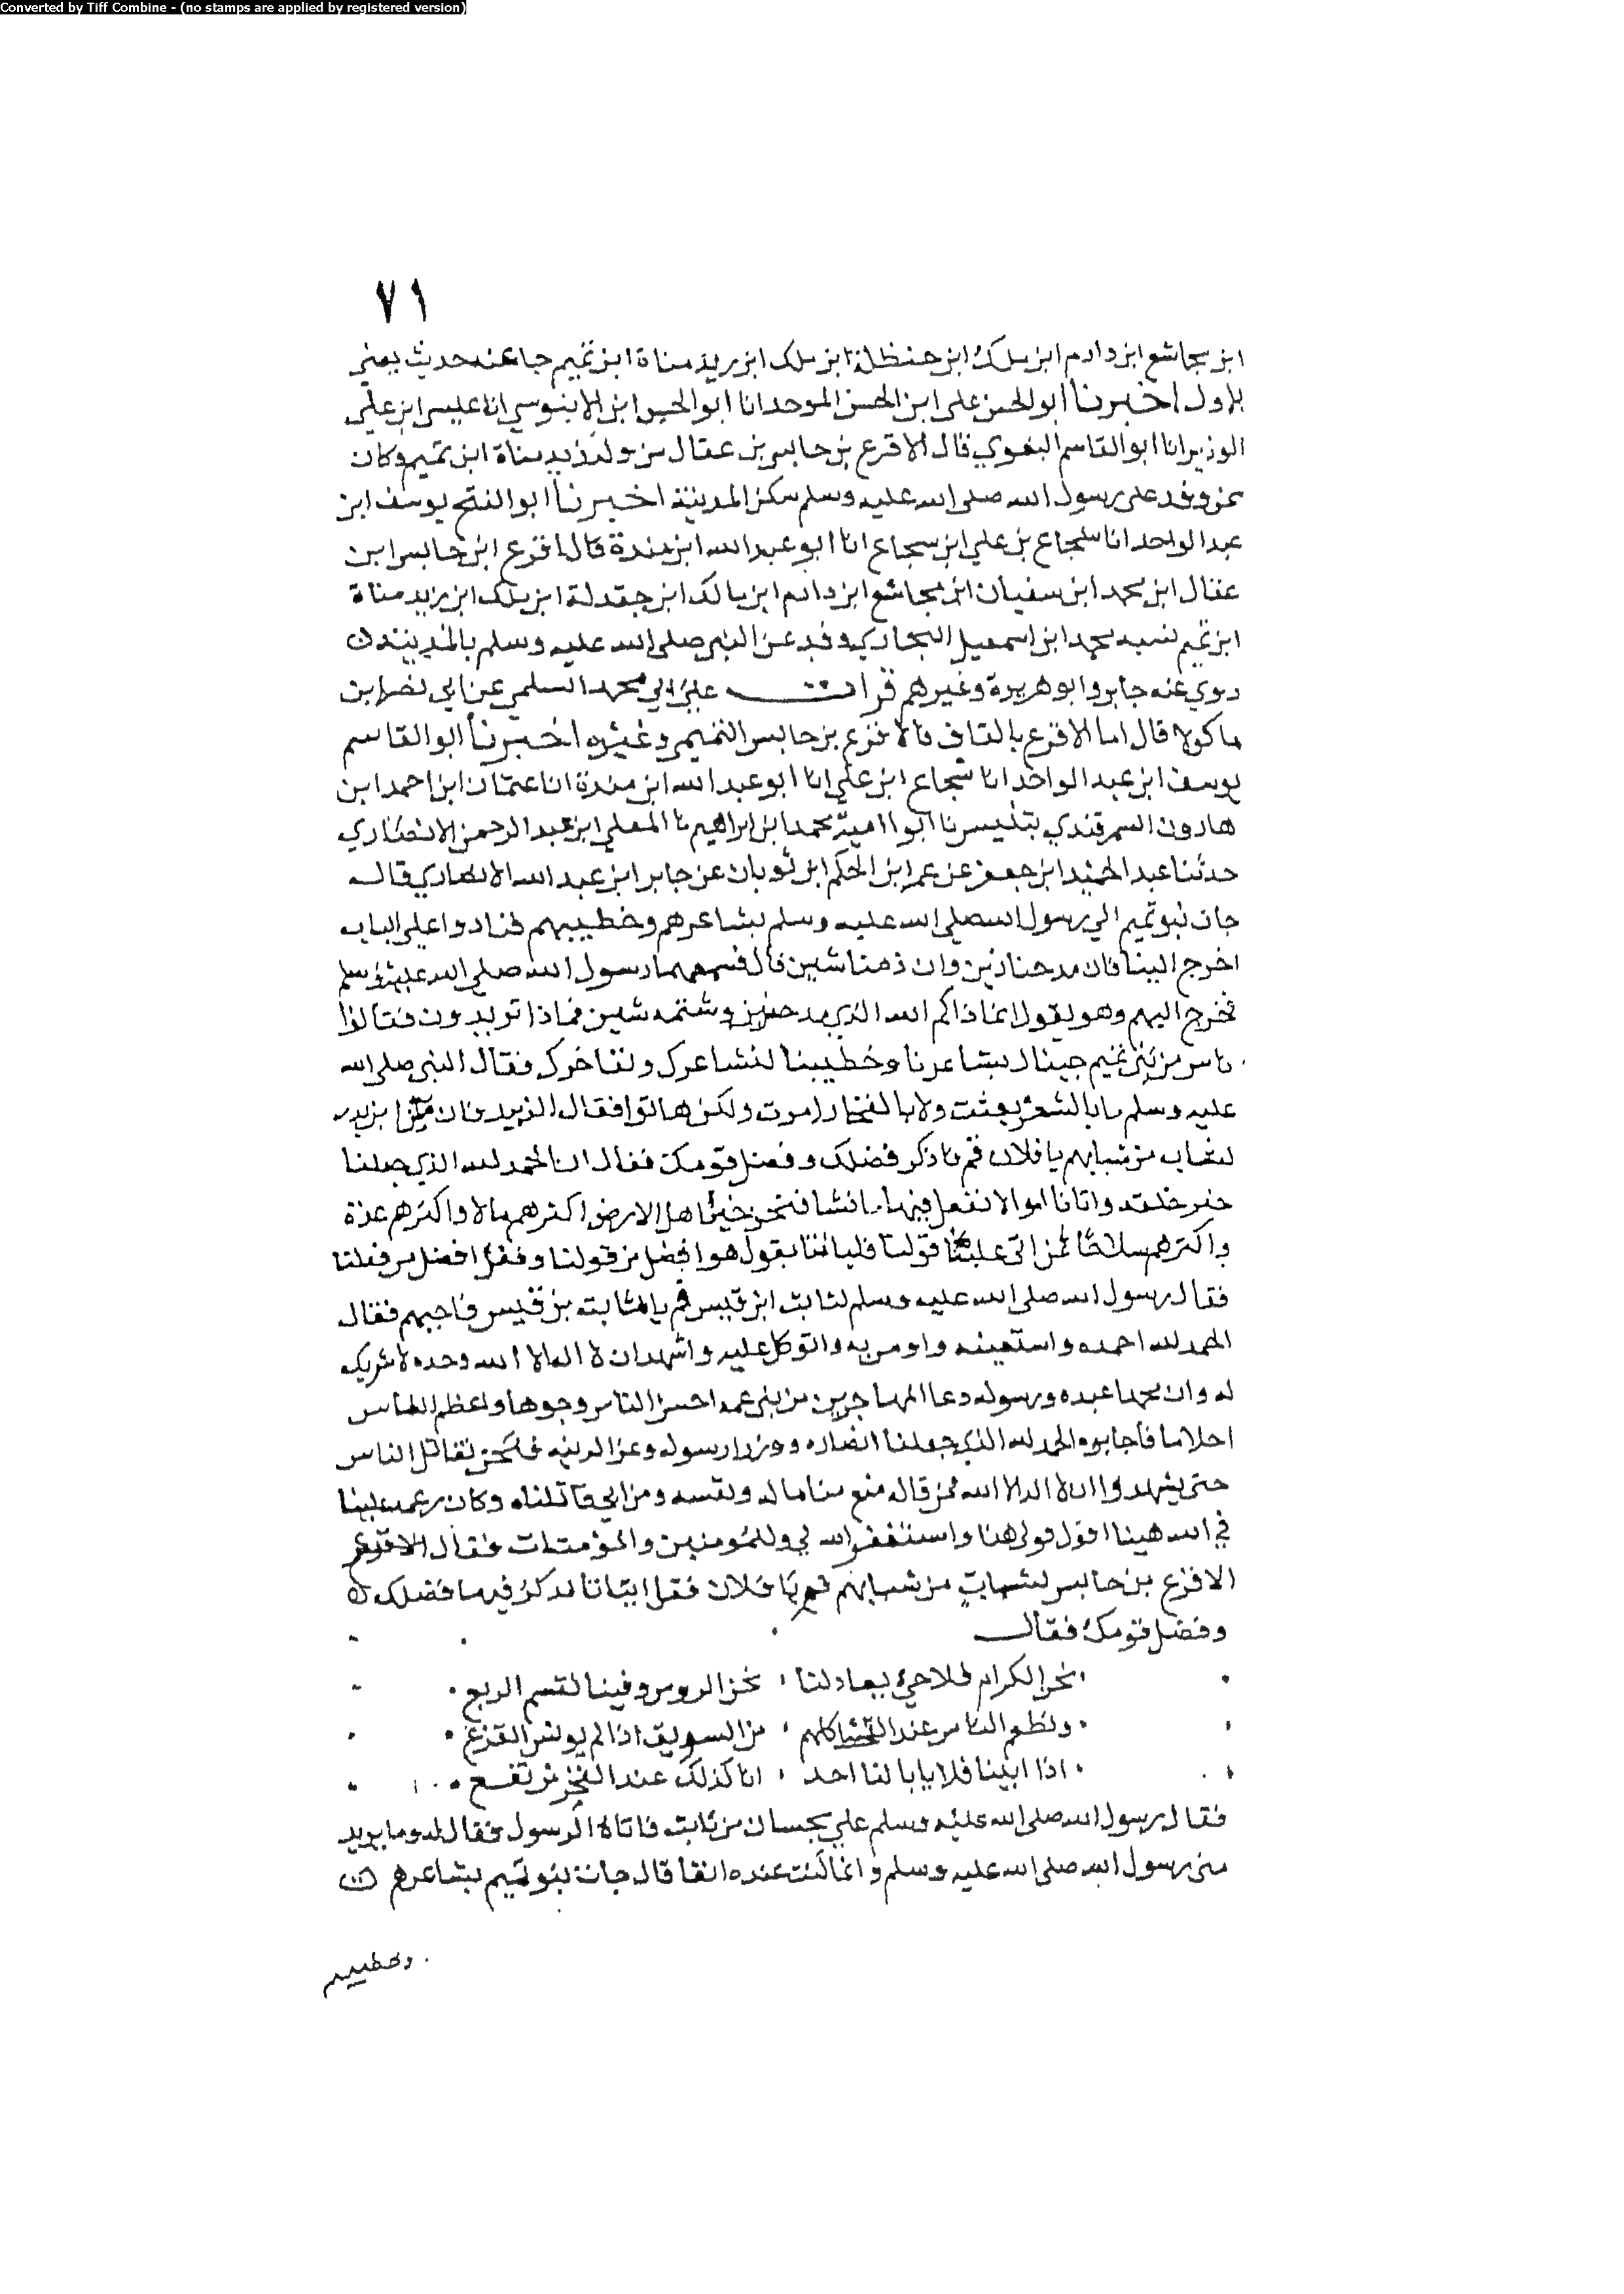 Converted by Tiff Combine - (no stamps are applied by registered version)
٧١
ابن مجاشع ابن دارم ابن ملك ابن حنظلة ابن ملك ابن زيد مناة ابن تميم جا عنه حديث يعني
بلاول اخبرنا ابو الحسن علي ابن الحسن الموحد انا ابو الحسين ابن الابنوسي انا عيسى ابن علي
الوزير انا ابو القاسم البغوي قال الاقرع بن حابس بن عقال من ولد زيد مناة ابن تميم وكان
ممن وفد على رسول الله صلى الله عليه وسلم سكن المدينة اخبرنا ابو الفتح يوسف ابن
عبد الواحد انا شجاع بن علي ابن شجاع انا ابو عبد الله ابن مندة قال اقرع ابن حابس ابن
عقال ابن محمد ابن سفيان ابن مجاشع ابن دارم ابن مالك ابن حنظلة ابن ملك ابن زيد مناة
ابن تميم نسبه محمد ابن اسمعيل البخاري وفد عن النبي صلى الله عليه وسلم بالمدينة
روي عنه جابر وابو هريرة وغيرهم قرات على ابي محمد السلمي عن ابي نصر ابن
ماكولا قال اما الاقرع بالقاف فالاقرع بن حابس التميمي وغيره اخبرنا ابو القاسم
يوسف ابن عبد الواحد انا شجاع ابن علي انا ابو عبد الله ابن مندة انا عثمان ابن احمد ابن
هارون السمرقندي بتنيس نا ابو امية محمد ابن ابراهيم نا المعلى ابن عبد الرحمن الانصاري
حدثنا عبد الحميد ابن جعفر عن عمر ابن الحكم ابن ثوبان عن جابر ابن عبد الله الانصاري قال
جات بنو تميم الي رسول الله صلى الله عليه وسلم بشاعرهم وخطيبهم فنادوا على الباب
اخرج الينا فان مدحنا زين وان ذمنا شين قال فسمعهما رسول الله صلى الله عليه وسلم
فخرج اليهم وهو يقول انما ذاكم الله الذي مدحه زين وشتمه شين فماذا تريدون فقالوا
ناس من بني تميم جينا بشاعرنا وخطيبنا لنشاعرك ونفاخرك فقال النبي صلى الله
عليه وسلم ما بالشعر بعثت ولا بالفخار امرت ولكن هاتوا فقال الزبرقان ابن بدر
لشاب من شبابهم يا فلان قم فاذكر فضلك وفضل قومك فقال ان الحمد لله الذي جعلنا
خير خلقه واتانا اموالا نفعل فيها ما نشا فنحن خير اهل الارض اكثرهم مالا واكثرهم عدة
واكثرهم سلاحا فمن ابى علينا قولنا فلياتنا بقول هو افضل من قولنا وفعل افضل من فعلنا
فقال رسول الله صلى الله عليه وسلم لثابت ابن قيس قم يا ثابت بن قيس فاجبهم فقال
الحمد لله احمده واستعينه واومن به واتوكل عليه واشهد ان لا اله الا الله وحده لا شريك
له وان محمدا عبده ورسوله دعا المهاجرين من بني عمه احسن الناس وجوها واعظم الناس
احلاما فاجابوه الحمد لله الذي جعلنا انصاره ووزرا رسوله وعزا لدينه فنحن نقاتل الناس
حتى يشهدوا ان لا اله الا الله فمن قالها منع منا ماله ونفسه ومن ابى قاتلناه وكان رغمه علينا
في الله هينا اقول قولي هذا واستغفر الله لي وللمومنين والمؤمنات فقال الاقرع
الاقرع بن حابس لشاب من شبابهم قم يا فلان فقل ابياتا تذكر فيها فضلك
وفضل قومك فقال
نحن الكرام فلا حي يعادلنا نحن الروس وفينا تقسم الربع
ونطعم الناس عند القحط كلهم من السويق اذا لم يونس القزع
اذا ابينا فلا يابا لنا احد انا كذلك عند الفخر نرتفع
فقال رسول الله صلى الله عليه وسلم علي بحسان بن ثابت فاتاه الرسول فقال له وما يريد
مني رسول الله صلى الله عليه وسلم وانما كنت عنده انفا قال جات بنو تميم بشاعرهم
وخطيبهم